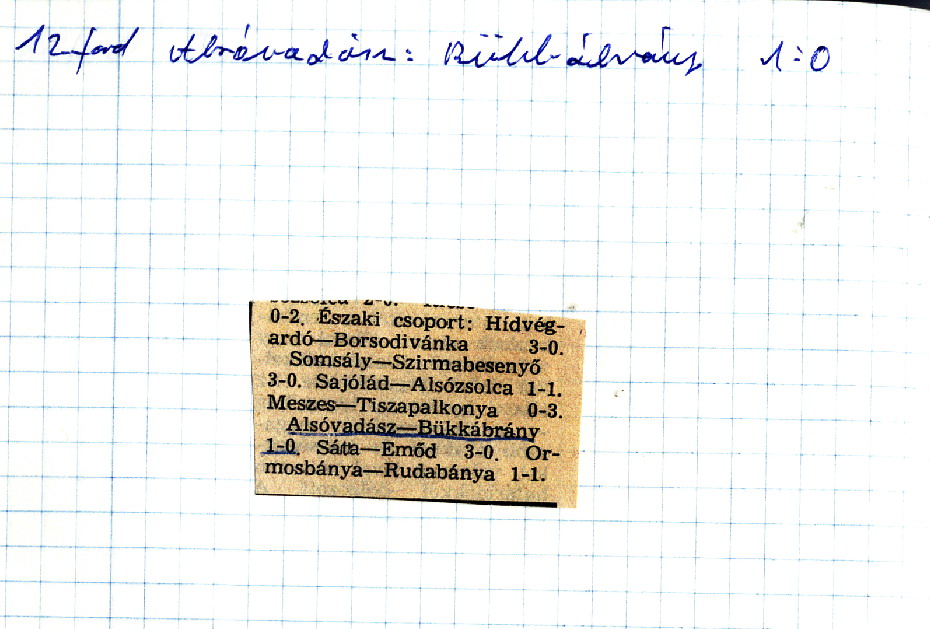 12 ford Alsóvadász: Bükkábrány 1:0
0-2. Északi csoport: Hídvég-
ardó—Borsodivánka 3-0.
Somsály—Szirmabesenyő
3-0. Sajólád—Alsózsolca 1-1.
Meszes—Tiszapalkonya 0-3.
Alsóvadász—Bükkábrány
1-0. Sátta—Emőd 3-0. Or-
mosbánya—Rudabánya 1-1.